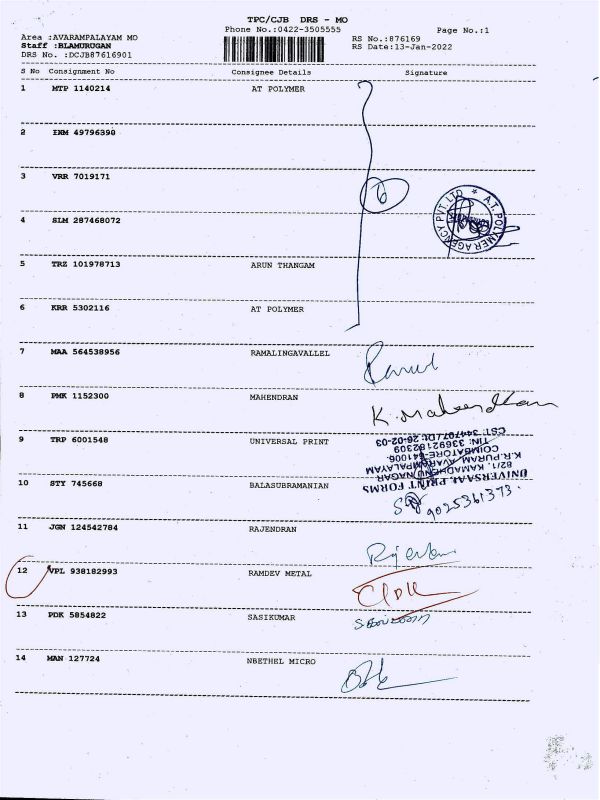 TPC/CJB DRS - MO
Phone No.:0422-3505555
Page No.:1
Area :AVARAMPALAYAM MO
RS No.:876169
Staff :BLAMURUGAN
RS Date:13-Jan-2022
DRS No. :DCJB87616901
S No Consignment No Consignee Details Signature
1 MTP 1140214 AT POLYMER
2 EKM 49796390
3 VRR 7019171
6
A.T. POLYMER AGENCY PVT LTD
4 SLM 287468072
5 TRZ 101978713 ARUN THANGAM
6 KRR 5302116 AT POLYMER
7 MAA 564538956 RAMALINGAVALLEL
8 PMK 1152300 MAHENDRAN
K. Mahendran
9 TRP 6001548 UNIVERSAL PRINT
UNIVERSAAL PRINT FORMS
82/1, KAMADHENU NAGAR
K.R.PURAM, AVARAMPALAYAM
COIMBATORE-641006.
TIN: 33692182309
CST: 344707/Dt: 26-02-03
10 STY 745668 BALASUBRAMANIAN
9025361373.
11 JGN 124542784 RAJENDRAN
12 VPL 938182993 RAMDEV METAL
13 PDK 5854822 SASIKUMAR
14 MAN 127724 NBETHEL MICRO